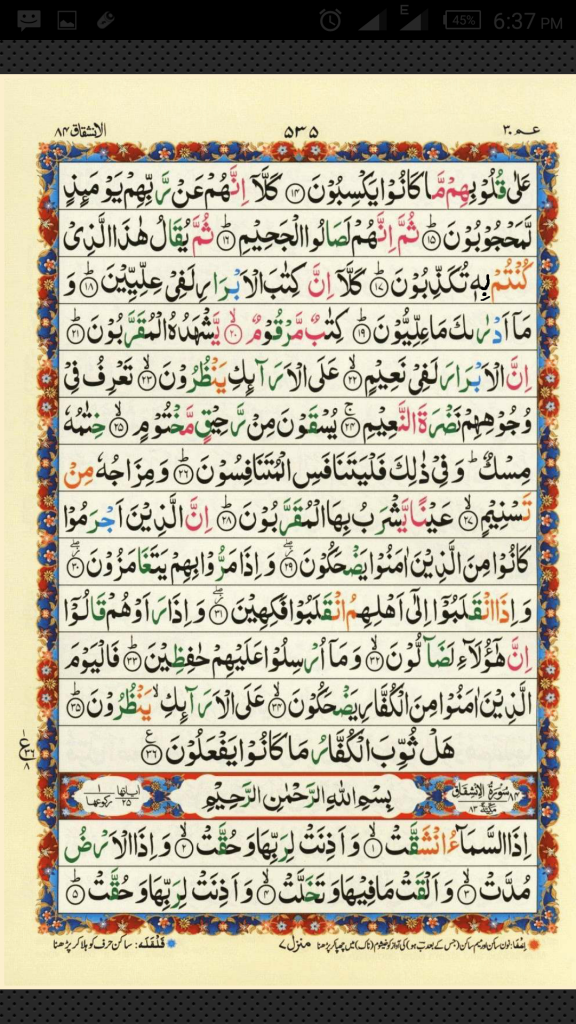 E 45% 6:37 PM
عـم ۳۰ ۵۳۵ الانشقاق ۸۴
عَلٰى قُلُوْبِهِمْ مَّا كَانُوْا يَكْسِبُوْنَ ۝۱۴ كَلَّاۤ اِنَّهُمْ عَنْ رَّبِّهِمْ يَوْمَىِٕذٍ
لَّمَحْجُوْبُوْنَ ۝۱۵ؕ ثُمَّ اِنَّهُمْ لَصَالُوا الْجَحِيْمِ ۝۱۶ؕ ثُمَّ يُقَالُ هٰذَا الَّذِىْ
كُنْتُمْ بِهٖ تُكَذِّبُوْنَ ۝۱۷ؕ كَلَّاۤ اِنَّ كِتٰبَ الْاَبْرَارِ لَفِىْ عِلِّيِّيْنَ ۝۱۸ؕ وَ
مَاۤ اَدْرٰٮكَ مَا عِلِّيُّوْنَ ۝۱۹ؕ كِتٰبٌ مَّرْقُوْمٌ ۝۲۰ۙ يَّشْهَدُهُ الْمُقَرَّبُوْنَ ۝۲۱ؕ
اِنَّ الْاَبْرَارَ لَفِىْ نَعِيْمٍ ۝۲۲ۙ عَلَى الْاَرَآىِٕكِ يَنْظُرُوْنَ ۝۲۳ۙ تَعْرِفُ فِىْ
وُجُوْهِهِمْ نَضْرَةَ النَّعِيْمِ ۝۲۴ۚ يُسْقَوْنَ مِنْ رَّحِيْقٍ مَّخْتُوْمٍ ۝۲۵ۙ خِتٰمُهٗ
مِسْكٌ ؕ وَفِىْ ذٰلِكَ فَلْيَتَنَافَسِ الْمُتَنَافِسُوْنَ ۝۲۶ؕ وَمِزَاجُهٗ مِنْ
تَسْنِيْمٍ ۝۲۷ۙ عَيْنًا يَّشْرَبُ بِهَا الْمُقَرَّبُوْنَ ۝۲۸ؕ اِنَّ الَّذِيْنَ اَجْرَمُوْا
كَانُوْا مِنَ الَّذِيْنَ اٰمَنُوْا يَضْحَكُوْنَ ۝۲۹ۖ وَاِذَا مَرُّوْا بِهِمْ يَتَغَامَزُوْنَ ۝۳۰ۖ
وَاِذَا انْقَلَبُوْۤا اِلٰٓى اَهْلِهِمُ انْقَلَبُوْا فَكِهِيْنَ ۝۳۱ۖ وَاِذَا رَاَوْهُمْ قَالُوْۤا
اِنَّ هٰٓؤُلَاۤءِ لَضَآلُّوْنَ ۝۳۲ۙ وَمَاۤ اُرْسِلُوْا عَلَيْهِمْ حٰفِظِيْنَ ۝۳۳ؕ فَالْيَوْمَ
الَّذِيْنَ اٰمَنُوْا مِنَ الْكُفَّارِ يَضْحَكُوْنَ ۝۳۴ۙ عَلَى الْاَرَآىِٕكِ ۙ يَنْظُرُوْنَ ۝۳۵ؕ
هَلْ ثُوِّبَ الْكُفَّارُ مَا كَانُوْا يَفْعَلُوْنَ ۝۳۶
۸۴ سُوْرَةُ الْاِنْشِقَاقِ مَكِّيَّةٌ ۸۳ بِسْمِ اللهِ الرَّحْمٰنِ الرَّحِيْمِ اٰياتها ۲۵ ركوعها ۱
اِذَا السَّمَآءُ انْشَقَّتْ ۝۱ۙ وَاَذِنَتْ لِرَبِّهَا وَحُقَّتْ ۝۲ۙ وَاِذَا الْاَرْضُ
مُدَّتْ ۝۳ۙ وَاَلْقَتْ مَا فِيْهَا وَتَخَلَّتْ ۝۴ۙ وَاَذِنَتْ لِرَبِّهَا وَحُقَّتْ ۝۵ؕ
منزل ۷ قَلْقَلَه: ساکن حرف کو ہلا کر پڑھنا